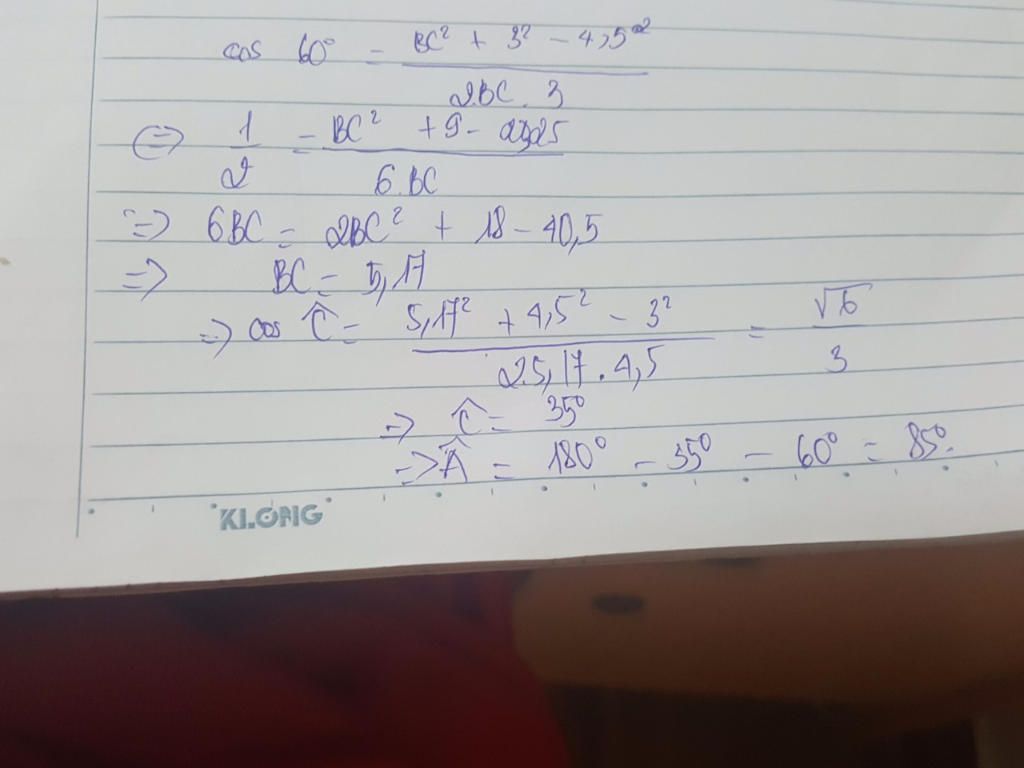 cos 60° = BC² + 3² - 4,5² / 2BC . 3
⇔ 1/2 = BC² + 9 - 20,25 / 6.BC
⇒ 6BC = 2BC² + 18 - 40,5
⇒ BC = 5,17
⇒ cos Ĉ = 5,17² + 4,5² - 3² / 2.5,17 . 4,5 = √6 / 3
⇒ Ĉ = 35°
⇒ Â = 180° - 35° - 60° = 85°.
KLONG